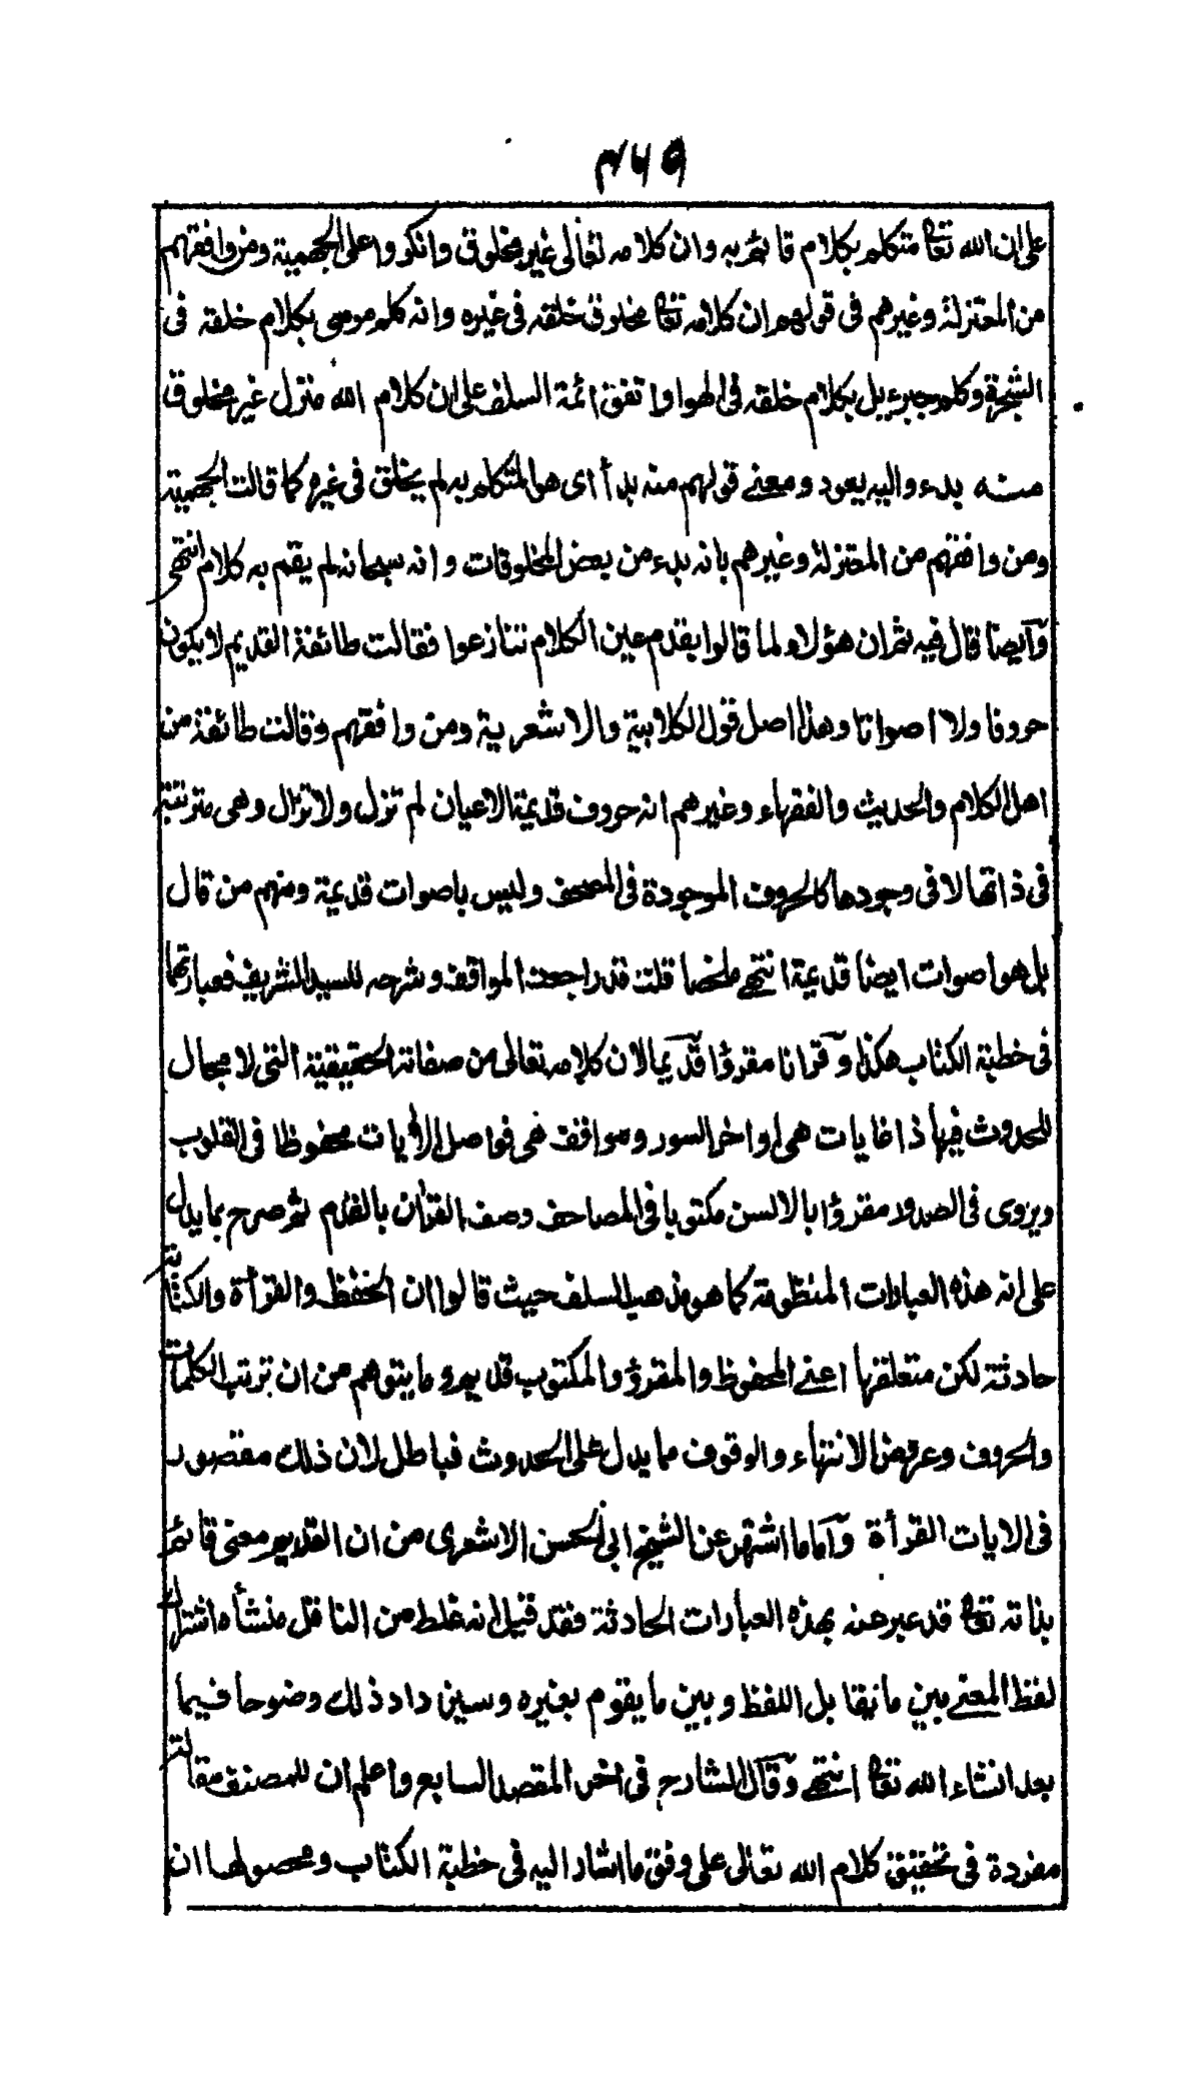 ٣٦٩
على ان الله تعا متكلم بكلام قائم به وان كلامه تعالى غير مخلوق وانكروا على الجهمية ومن وافقهم
من المعتزلة وغيرهم فى قولهم ان كلامه تعا مخلوق خلقه فى غيره وانه كلم موسى بكلام خلقه فى
الشجرة وكلم جبرءيل بكلام خلقه فى الهوا واتفق ائمة السلف على ان كلام الله منزل غير مخلوق
منه بدء واليه يعود ومعنے قولهم منه بدأ اى هو المتكلم به لم يخلق فى غيره كما قالت الجهمية
ومن وافقهم من المعتزلة وغيرهم بانه بدء من بعض المخلوقات وانه سبحانه لم يقم به كلام انتهى
وآيضا قال فيه ثم ان هؤلاء لما قالوا بقدم عين الكلام تنازعوا فقالت طائفة القديم لا يكون
حروفا ولا اصواتا وهذا اصل قول الكلابية والاشعرية ومن وافقهم وقالت طائفة من
اهل الكلام والحديث والفقهاء وغيرهم انه حروف قديمة الاعيان لم تزل ولا تزال وهى مترتبة
فى ذاتها لا فى وجودها كالحروف الموجودة فى المصحف وليس باصوات قديمة ومنهم من قال
بل هو اصوات ايضا قديمة انتهے ملخصا قلت قد راجعت المواقف وشرحه للسيد الشريف فعبارتهما
فى خطبة الكتاب هكذا وٓقرانا مقرؤا قٓديما لان كلامه تعالى من صفاته الحقيقية التى لا مجال
للحدوث فيها ذا غايات هى اواخر السور ومواقف هى فواصل الأيات محفوظا فى القلوب
ويروى فى الصدور مقرؤا بالالسن مكتوبا فى المصاحف وصف القرأن بالقدم ثم صرح بما يدل
على انه هذه العبارات المنظومة كما هو مذهب السلف حيث قالوا ان الحفظ والقرأة والكتابة
حادثة لكن متعلقها اعنے المحفوظ والمقرؤ والمكتوب قديم وما يتوهم من ان ترتب الكلمات
والحروف وعروض الانتهاء والوقوف مما يدل على الحدوث فباطل لان ذلك مقصور
فى الايات القرأة وٓاما ما اشتهر عن الشيخ ابى الحسن الاشعرى من ان القديم معنى قائم
بذاته تعا قد عبر عنه بهذه العبارات الحادثة فقد قيل انه غلط من الناقل منشأه اشتراك
لفظ المعنے بين ما يقابل اللفظ وبين ما يقوم بغيره وسيزداد ذلك وضوحا فيما
بعد انشاء الله تعا انتهے وٓقال الشارح فى اخر المقصد السابع واعلم ان للمصنف مقالة
مفردة فى تحقيق كلام الله تعالى على وفق ما اشار اليه فى خطبة الكتاب ومحصولها ان